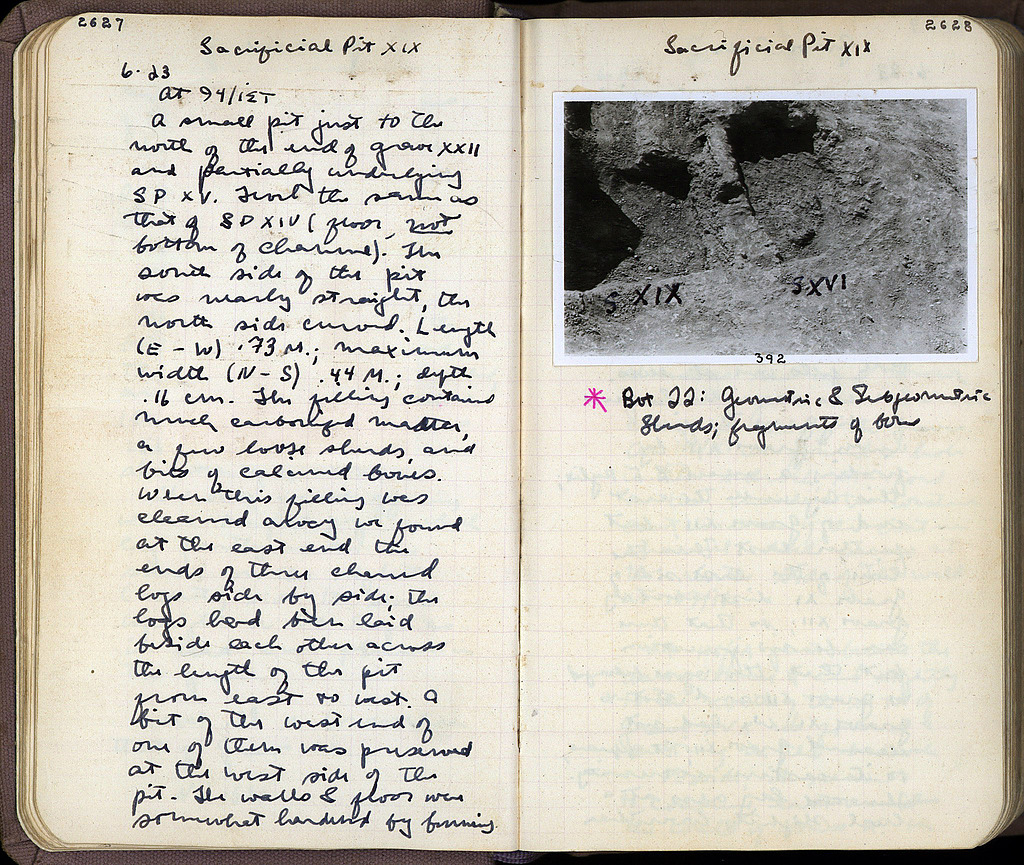 2627
Sacrificial Pit XIX
6·23
At 94/ΙΣΤ
A small pit just to the
north of the end of grave XXII
and partially underlying
SP XV. Level the same as
that of SP XIV (floor, not
bottom of channel). The
south side of the pit
was nearly straight, the
north side curved. Length
(E-W) .73 M.; maximum
width (N-S) .44 M.; depth
.16 cm. The filling contained
much carbonized matter,
a few loose sherds, and
bits of calcined bones.
When this filling was
cleaned away we found
at the east end the
ends of three charred
logs side by side; the
logs had been laid
beside each other across
the length of the pit
from east to west. A
bit of the west end of
one of them was preserved
at the west side of the
pit. The walls & floor were
somewhat hardened by burning.
2628
Sacrificial Pit XIX
S XIX
S XVI
392
* Box 22: Geometric & Subgeometric
sherds; fragments of bone